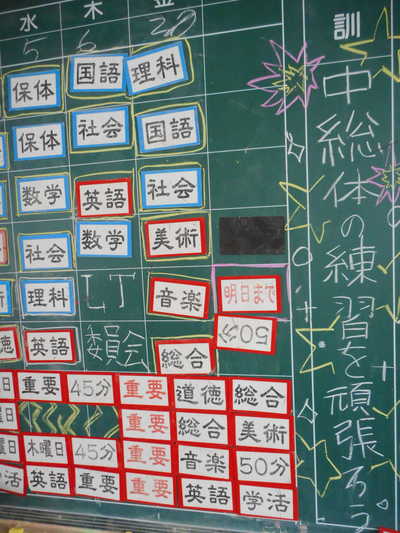 水 木 金
5
保体 国語 理科
保体 社会 国語
数学 英語 社会
社会 数学 美術
理科 LT 音楽 明日まで
徳 英語 委員会 総合 50分
日 重要 45分 重要 道徳 総合
日 重要 総合 美術
日 木曜日 45分 重要 音楽 50分
活 英語 重要 重要 英語 学活
訓
中総体の練習を頑張ろう